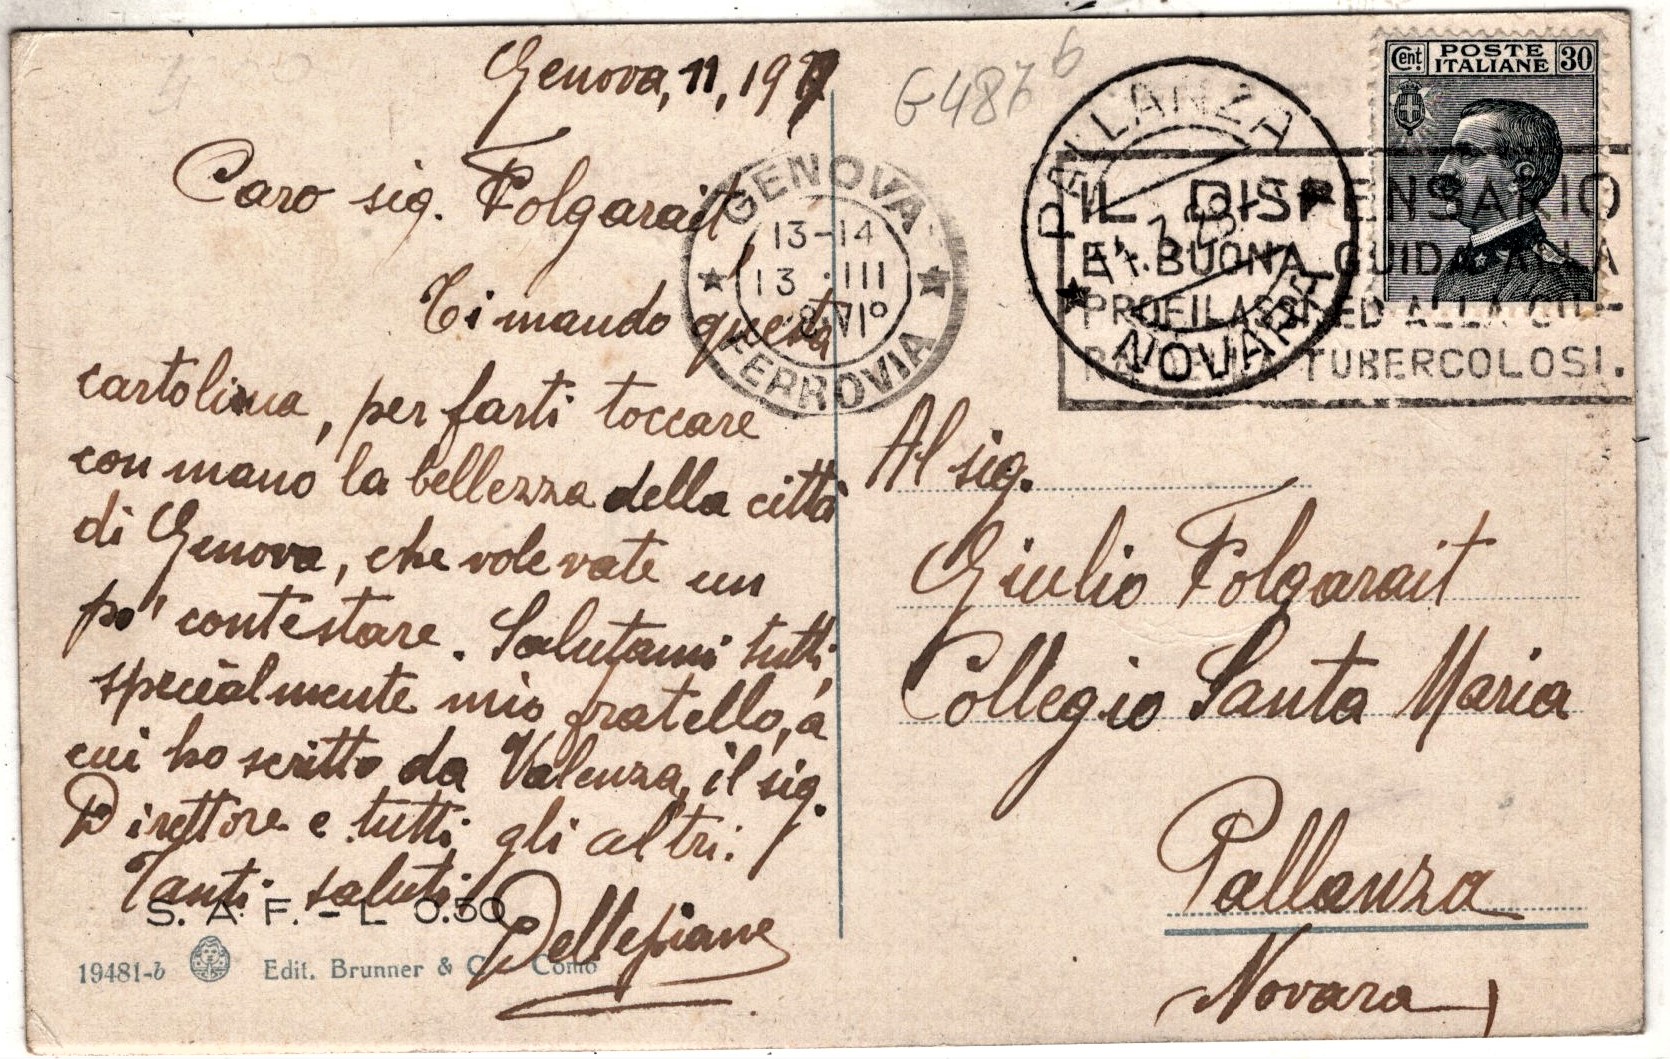 Genova, 11, 19
Caro sig. Folgarait
Ti mando questa
cartolina, per farti toccare
con mano la bellezza della città
di Genova, che volevate un
po' contestare. Salutami tutti,
specialmente mio fratello, a
cui ho scritto da Valenza, il sig.
Direttore e tutti gli altri.
Tanti saluti
Dellepiane
S. A. F. - L 0.50
19481-b Edit. Brunner & C. Como
G487 b
GENOVA
13-14
13 · III
8 VI°
FERROVIA
PALLANZA
NOVARA
IL DISPENSARIO
E' BUONA GUIDA ALLA
PROFILASSI ED ALLA CU-
RA DELLA TUBERCOLOSI.
Cent POSTE ITALIANE 30
Al sig.
Giulio Folgarait
Collegio Santa Maria
Pallanza
Novara